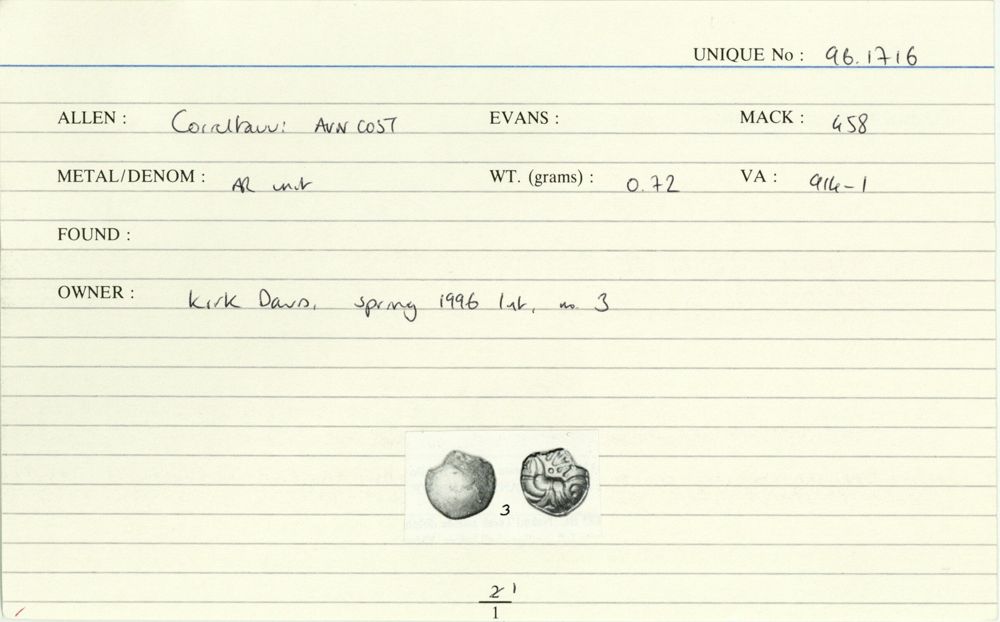 UNIQUE No : 96.1716
ALLEN : Correltauvi: AVN COST EVANS : MACK : 458
METAL/DENOM : AR unit WT. (grams) : 0.72 VA : 914-1
FOUND :
OWNER : Kirk Davis, spring 1996 list, no. 3
3
2 1
1